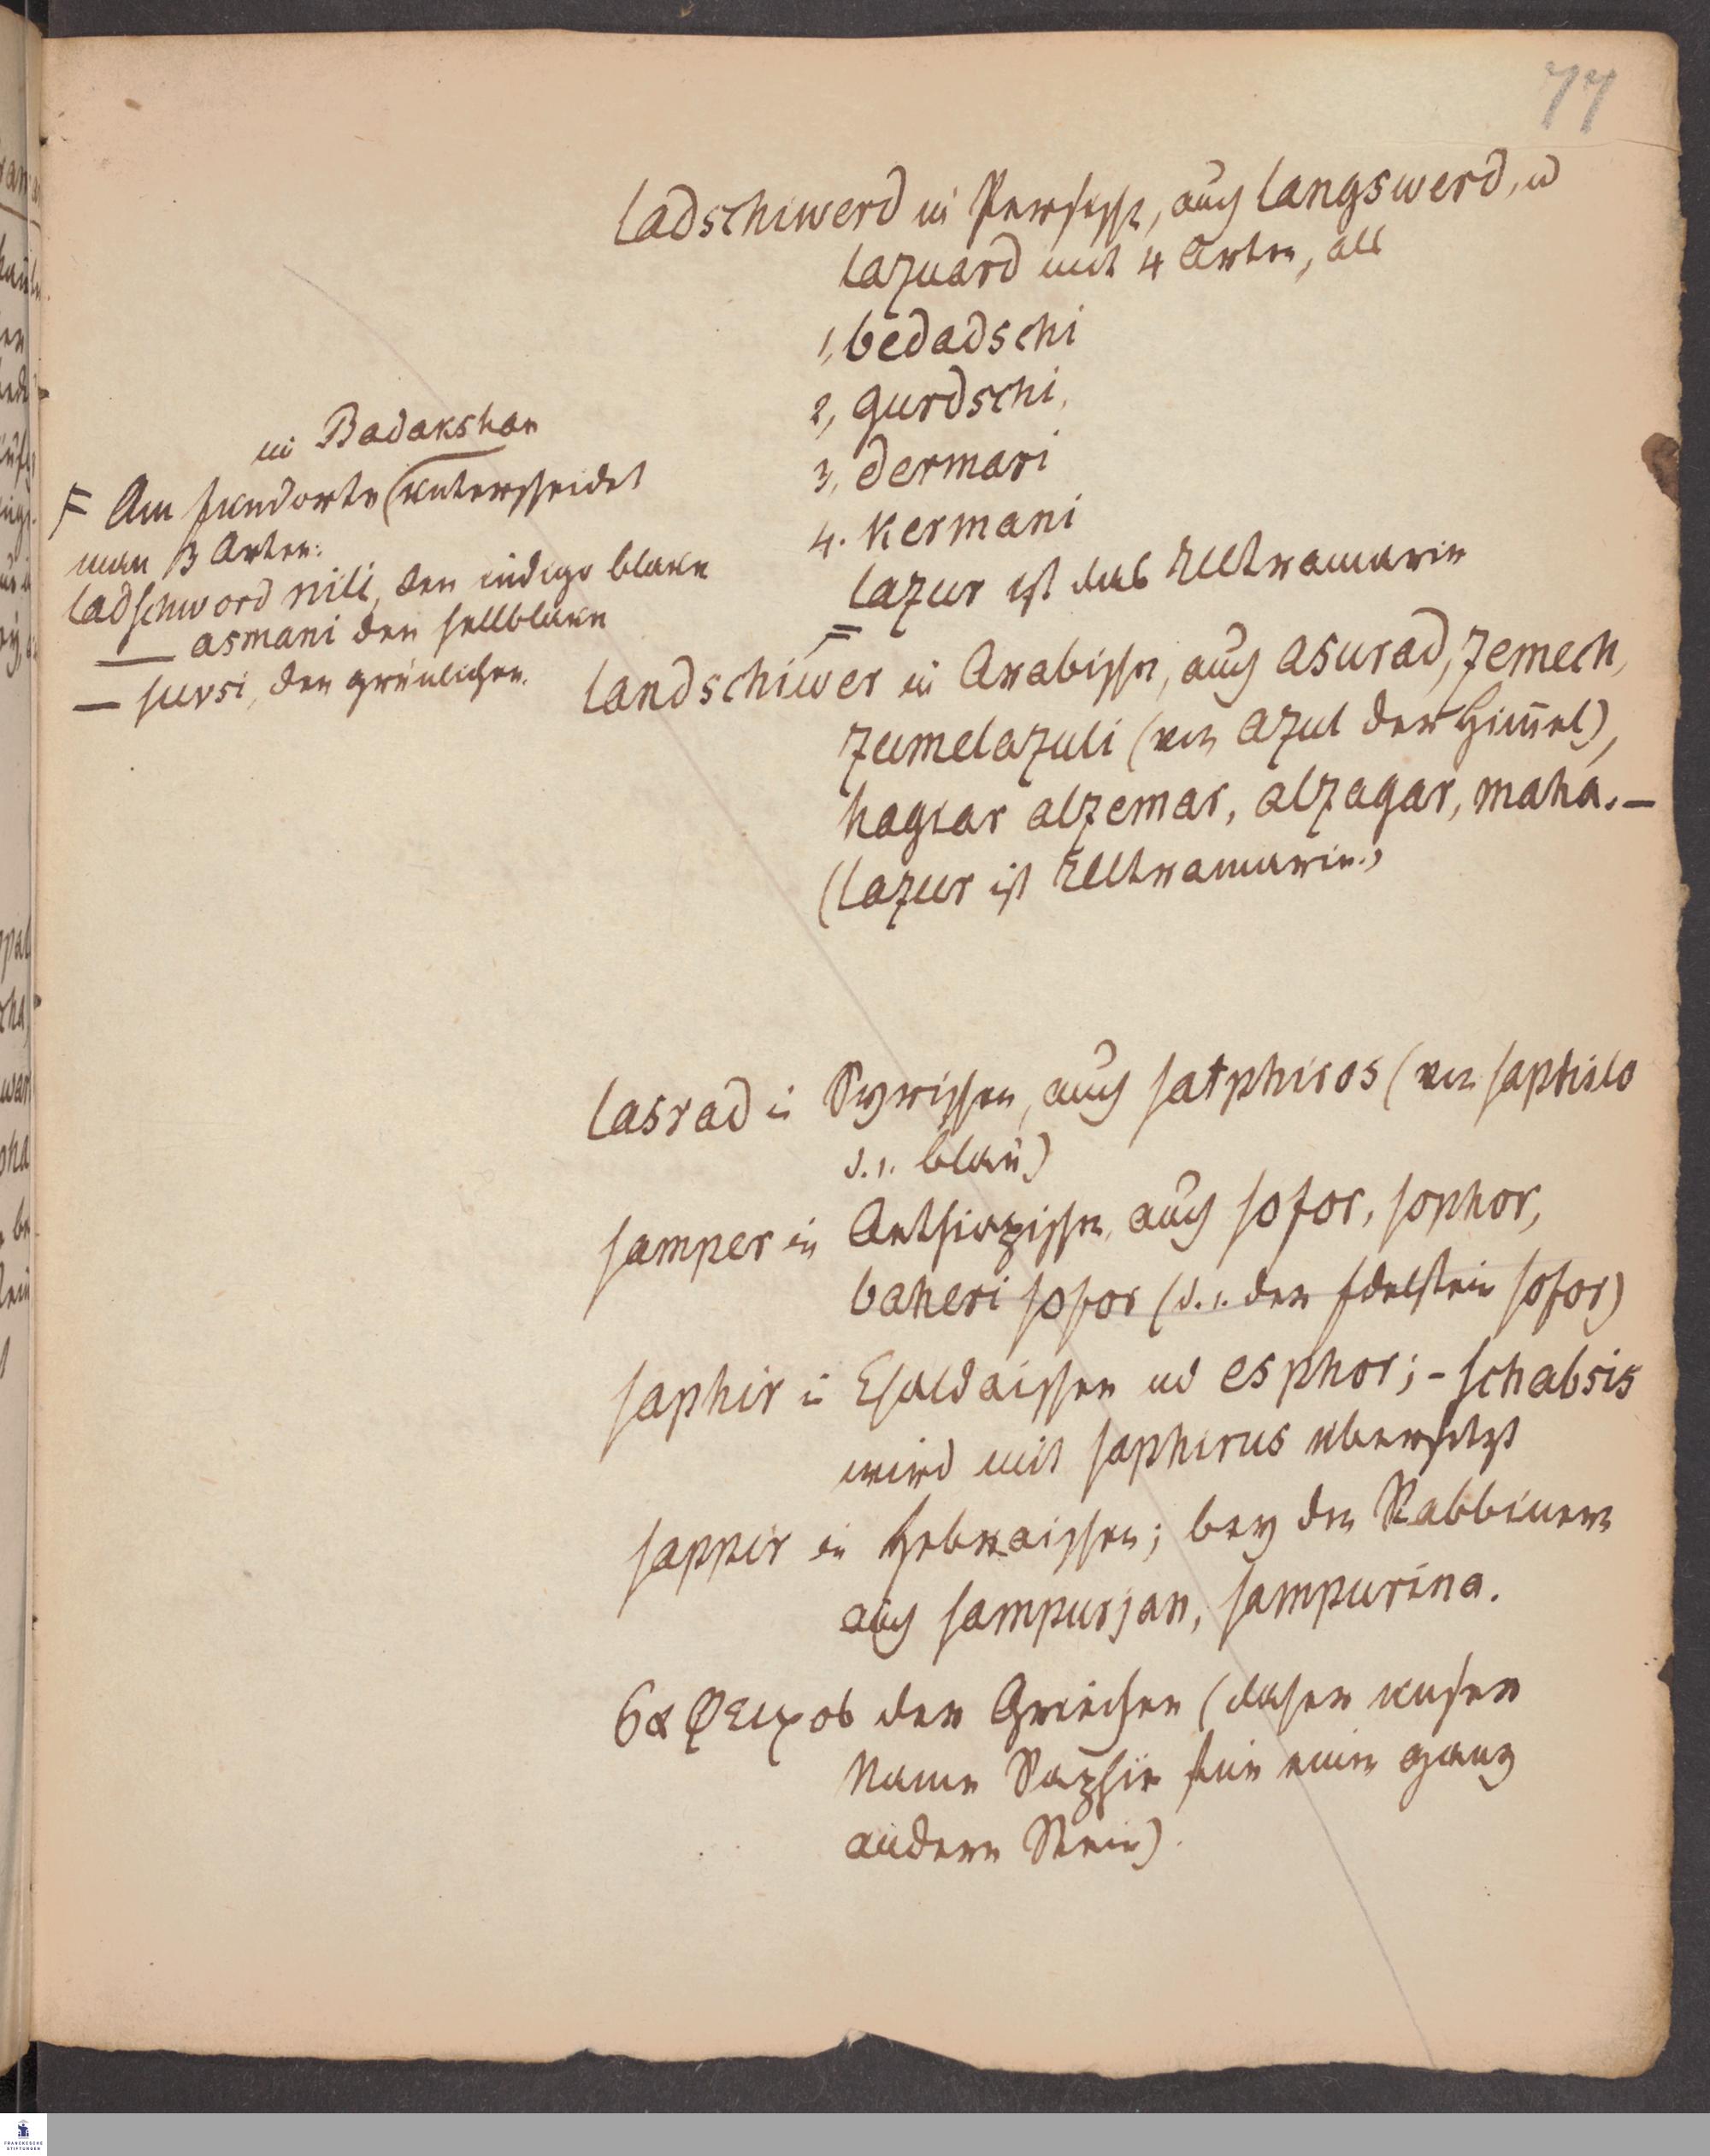 77
ladschiwerd in Persisch, auch langswerd, u
lazuard mit 4 Arten, als
1, bedadschi
2, gurdschi,
3, dermari
4. Kermani
lazur ist das Ultramarin
in Badakshan
F Am Fundorte unterscheidet
man 3 Arten:
ladschword nili, den indigo blauen
— asmani den hellblauen
— suvsi, den grünlichen.
F
landschiwer in Arabischen, auch asurad, zemech,
zumelazuli (von azul der Himel),
hagiar alzemar, alzagar, maha. —
(lazur ist Ultramarin.)
lasrad in Syrischen, auch satphiros (von saphilo
d. i. blau)
samper in Aethiopischen, auch sofor, sophor,
baheri sofor (d. i. der Edelstein sofor)
saphir in Chaldäischen ud esphor; - schabsis
wird mit saphirus übersetzt
sappir in Hebräischen; bey den Rabbinern
auch sampurjan, sampurina.
σαφειρος der Griechen (daher unser
Name Saphir für einen ganz
andern Stein).
FRANCKESCHE
STIFTUNGEN